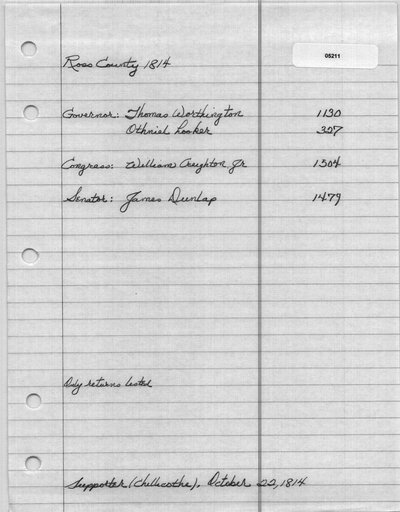 05211
Ross County 1814
Governor: Thomas Worthington 1130
Othniel Looker 327
Congress: William Creighton Jr 1504
Senator: James Dunlap 1479
Only returns listed
Supporter (Chillicothe), October 22, 1814